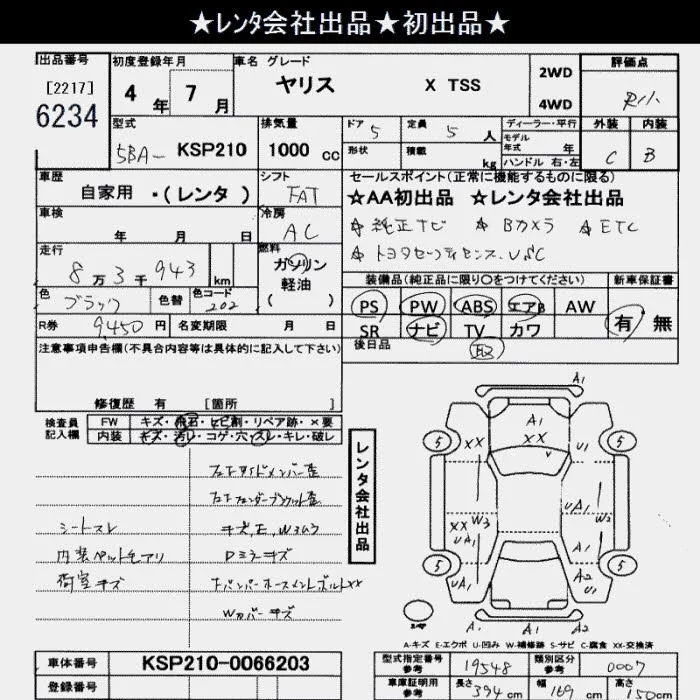 ★レンタ会社出品★初出品★
出品番号 初度登録年月 車名 グレード 評価点
[2217] 4年 7月 ヤリス X TSS 2WD 4WD
6234
型式 排気量 ドア 5 定員 5人 ディーラー・平行 外装 内装
5BA- KSP210 1000 cc 形状 積載 kg モデル年式 年 C B
ハンドル 右・左
車歴 シフト セールスポイント(正常に機能するものに限る)
自家用 ・(レンタ) FAT ★AA初出品 ★レンタ会社出品
車検 年 月 日 冷房 AC ☆純正ナビ ☆Bカメラ ☆ETC
走行 8万3千943 km 燃料 ガソリン 軽油 ( )
色 ブラック 色替 色コード 202 装備品(純正品に限り○をつけてください) 新車保証書
PS PW ABS エアB AW 有・無
R券 9,450円 名変期限 月 日 SR ナビ TV カワ
注意事項申告欄(不具合内容等は具体的に記入して下さい) 後日品 取
修復歴 有 [箇所 ]
検査員記入欄 FW キズ・飛石・ヒビ割・リペア跡・×要
内装 キズ・汚レ・コゲ・穴・スレ・キレ・破レ
シートスレ キズ,E,W3ムラ
Dミラーキズ
荷室キズ
Wカバーキズ
レンタ会社出品
A1
A1
XX XX U1
5 5
XX W3 UA1 W2
UA1
A1
5 5
UA1 A2 U1
A1 A1 A2
A-キズ E-エクボ U-凹み W-補修跡 S-サビ C-腐食 XX-交換済
車体番号 KSP210-0066203 型式指定番号 参考 19548 類別区分 参考 0007
登録番号 車庫証明用 参考 長さ 394 cm 幅 169 cm 高さ 150 cm